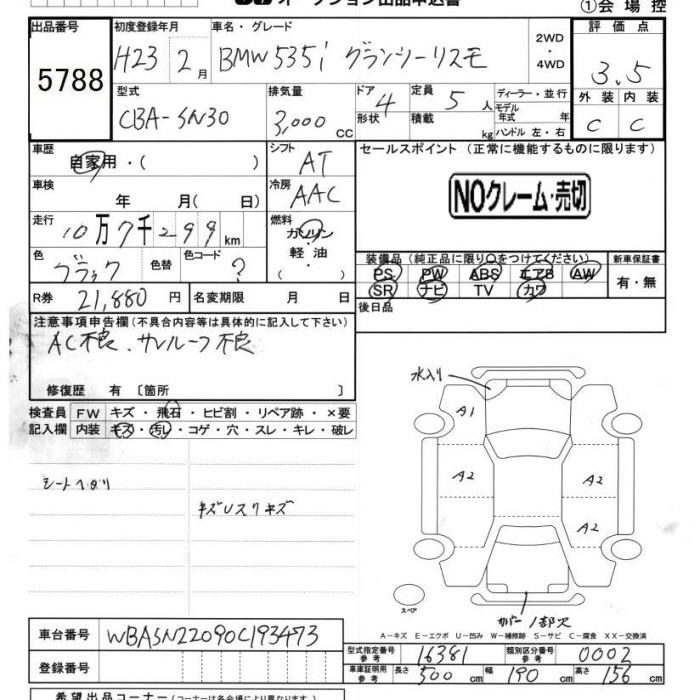 オークション出品申込書
①会場控
出品番号 5788
初度登録年月 H23 2月
車名・グレード BMW 535i グランツーリスモ
2WD・4WD
評価点 3.5
外装 C 内装 C
型式 CBA-SN30
排気量 3,000 CC
ドア形状 4
定員 5 人
積載 kg
ディーラー・並行
モデル年式 年
ハンドル 左・右
車歴 自家用・( )
シフト AT
セールスポイント (正常に機能するものに限ります)
NOクレーム・売切
車検 年 月( 日)
冷房 AAC
走行 10万7千299km
燃料 ガソリン 軽油
色 ブラック 色替 色コード ?
装備品(純正品に限り〇をつけてください) 新車保証書
PS PW ABS エアB AW 有・無
SR ナビ TV カワ
R券 21,880円 名変期限 月 日
後日品
注意事項申告欄(不具合内容等は具体的に記入して下さい)
AC不良、サンルーフ不良
修復歴 有 〔箇所 〕
検査員 FW キズ・飛石・ヒビ割・リペア跡・×要
記入欄 内装 キズ・汚レ・コゲ・穴・スレ・キレ・破レ
水入り
A1
A2
A2
A2
シートヘタリ
キズUスリキズ
スペア
カバー1部欠
A-キズ E-エクボ U-凹み W-補修跡 S-サビ C-腐食 XX-交換済
車台番号 WBASN22090C193473
型式指定番号 参考 16381 類別区分番号 参考 0002
登録番号
車庫証明用 参考 長さ 500cm 幅 190cm 高さ 156cm
希望出品コーナー(コーナーは各会場により異なります)